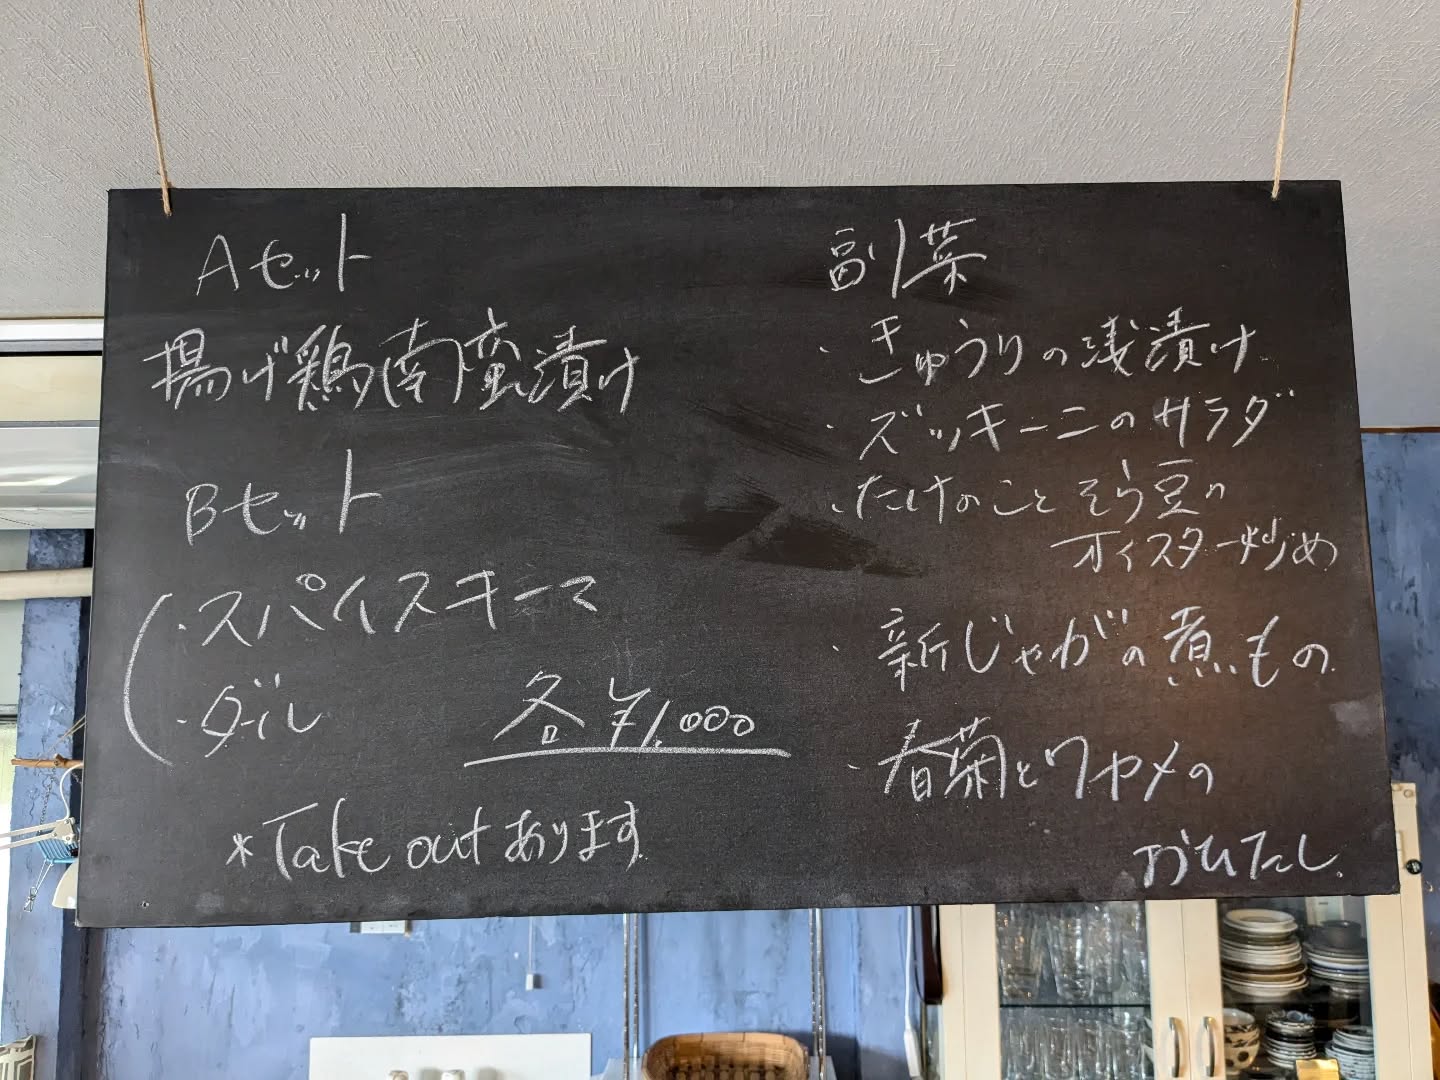 Aセット
揚げ鶏南蛮漬け
Bセット
・スパイスキーマ
・ダール
各¥1,000
*Take outあります
副菜
・きゅうりの浅漬け
・ズッキーニのサラダ
・たけのことそら豆の
オイスター炒め
・新じゃがの煮もの
・春菊とワカメの
おひたし